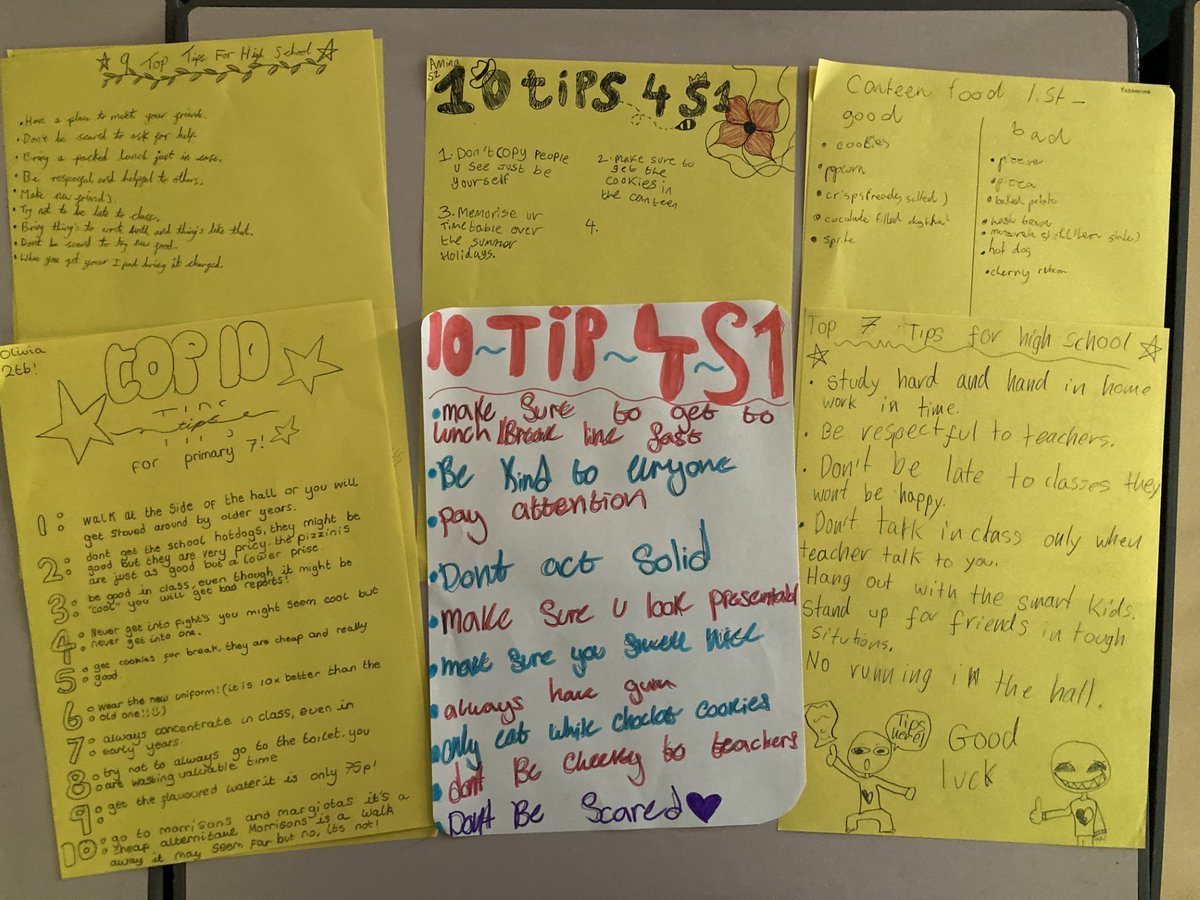 9 Top Tips For High School
• Have a place to meet your friends.
• Don't be scared to ask for help.
• Bring a packed lunch just in case.
• Be respecful and helpful to others.
• Make new friend's.
• Try not to be late to class.
• Bring thing's to write with and thing's like that.
• Dont be scared to try new food.
• When you get your I pad bring it charged.
Amina
S2
10 tips 4 S1
1. Don't copy people
u see just be
yourself
2. make sure to
get the
cookies in
the canteen
3. Memorise ur
Timetable over
the summer
Holidays.
4.
Canteen food list
good
• cookies
• popcorn
• crisps (ready salted)
filled
• sprite
bad
• pizza
• baked potato
• hash brown
• hot dog
• cherry
Olivia
2tb!
TOP 10
tips
for primary 7!
1: walk at the side of the hall or you will
get shoved around by older years.
2: dont get the school hotdogs, they might be
good but they are very pricy. the pizzinis
are just as good but a lower prise.
3: be good in class, even though it might be
"cool" you will get bad reports!
4: Never get into fight's you might seem cool but
never get into one.
5: get cookies for break, they are cheap and really
good.
6: wear the new uniform! (it is 10x better than the
old one!!)
7: always concentrate in class, even in
early years.
8: try not to always go to the toilet. you
are wasting valuable time
9: get the flavoured water it is only 75p!
10: go to morrisons and margiotas it's a
cheap alternitave. Morrisons is a walk
away it may seem far but no, its not!
10~TIP~4~S1
• make sure to get to
lunch/Break line fast
• Be kind to everyone
• pay attention
• Dont act solid
• make sure u look presentabl
• make sure you smell nice
• always have gum
• only eat white choclat cookies
• dont Be cheeky to teachers
• Dont Be Scared
Top 7 Tips for high school
• study hard and hand in home
work in time.
• Be respectful to teachers.
• Don't be late to classes they
wont be happy.
• Don't talk in class only when
teacher talk to you.
Hang out with the smart kids.
Stand up for friends in tough
situtions.
No running in the hall.
Tips
here!
Good
luck